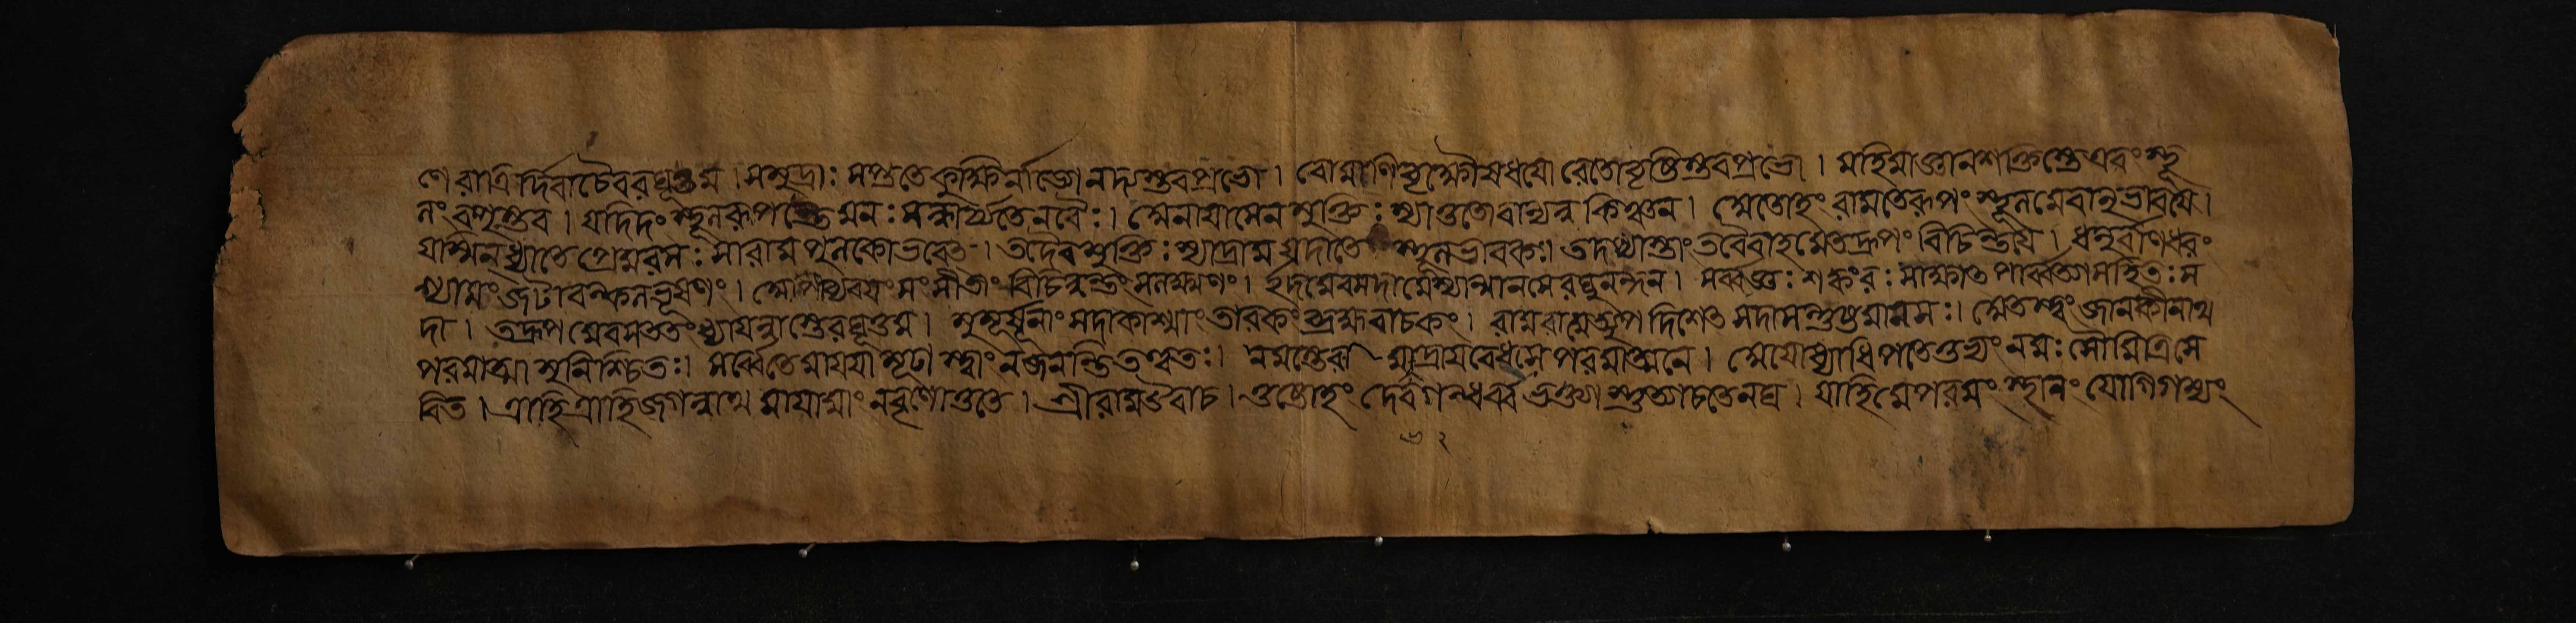 ণে রাত্রির্দিবাচৈবরঘূত্তম । সমুদ্রাঃ সপ্ততেকুক্ষির্নাড্যোনদ্যস্তবপ্রভো । রোমাণিবৃক্ষৌষধযো রেতোবৃষ্টিস্তবপ্রভো । মহিমাজ্ঞানশক্তিস্তেএবংস্থূ
লংবপুস্তব । যদিদংস্থূলরূপন্তেমনঃসন্ধার্য্যতেনরৈঃ । অনাযাসেনমুক্তিঃস্যাতুতোবান্যন্নকিঞ্চন । অতোহংরামতেরূপংস্থূলমেবানুভাবযে ।
যস্মিনধ্যাতেপ্রেমরসঃ সারামপুলকোভবেৎ । তদৈবমুক্তিঃস্যাদ্রাম যদাতে স্থূলভাবকঃ । তদপ্যাস্তাংতবৈবাহমেতদ্রূপং বিচিন্তযে । ধনুর্বাণধরং
শ্যামংজটাবল্কলভূষণং । অপীচ্যবযসংসীতাং বিচিন্বন্তংসলক্ষ্মণং । ইদমেবসদামেস্যান্মানসেরঘুনন্দন । সর্ব্বজ্ঞঃ শঙ্করঃ সাক্ষাৎপার্ব্বত্যাসহিতঃস
দা । ত্বদ্রূপমেবসততংধ্যাযন্নাস্তেরঘূত্তম । মুমূর্ষূনাংসদাকাশ্যাংতারকংব্রহ্মবাচকং । রামরামেত্যুপদিশেৎসদাসন্তুষ্টমানসঃ । অতস্ত্বংজানকীনাথ
পরমাত্মাসুনিশ্চিতঃ । সর্ব্বেতেমাযযামূঢাস্ত্বাংনজানন্তিতত্বতঃ । নমস্তেরামভদ্রাযবেধসেপরমাত্মনে । অযোধ্যাধিপতেতুভ্যংনমঃসৌমিত্রিসে
বিত । ত্রাহিত্রাহিজগন্নাথ মাযামাংনবৃণোতুতে । শ্রীরামউবাচ । তুষ্টোহং দেবগন্ধর্ব্বভক্ত্যাস্তুত্যাচতেনঘ । যাহিমেপরমংস্থানং যোগিগম্যং
৬২